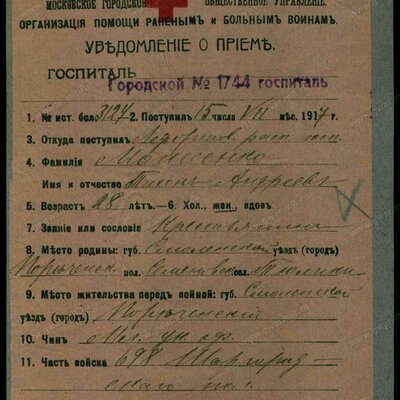 МОСКОВСКОЕ ГОРОДСКОЕ ОБЩЕСТВЕННОЕ УПРАВЛЕНІЕ.
ОРГАНИЗАЦІЯ ПОМОЩИ РАНЕНЫМЪ И БОЛЬНЫМЪ ВОИНАМЪ.
УВѢДОМЛЕНІЕ О ПРІЕМѢ.
ГОСПИТАЛЬ Городской № 1744 госпиталь
1. № ист. бол. 3127 2. Поступилъ 15 числа VII мѣс. 1917 г.
3. Откуда поступилъ
4. Фамилія Моисеенко
Имя и отчество Тихонъ Андреевъ
5. Возрастъ 28 лѣтъ.—6. Хол., жен., вдовъ.
7. Званіе или сословіе Крестьянинъ
8. Мѣсто родины: губ. Смоленской уѣздъ (городъ)
Порѣченск. вол. сел.
9. Мѣсто жительства передъ войной: губ. Смоленской
уѣздъ (городъ) Порѣченскій
10. Чинъ
11. Часть войска 698 Шаргород-
скаго пол.